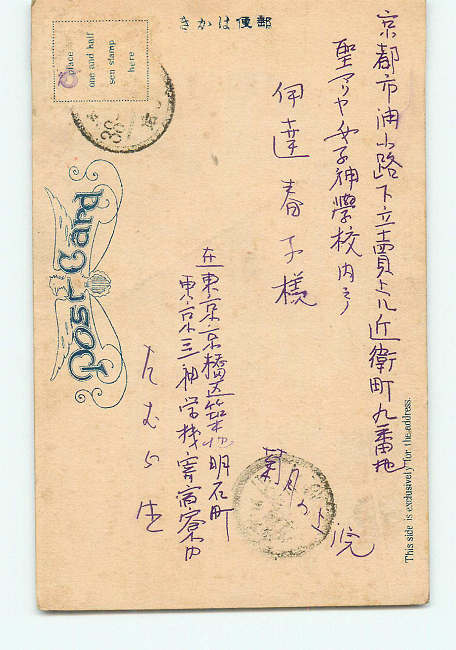 郵便はかき
place
one and half
sen stamp
here
Post Card
This side is exclusively for the address.
京都市油小路下立賣上ル近衛町九番地
聖アリヤ女子神學校内ニテ
伊達春子様
在東京京橋区築地明石町
東京三神学校寄宿寮内
たむら生
菊月の上浣